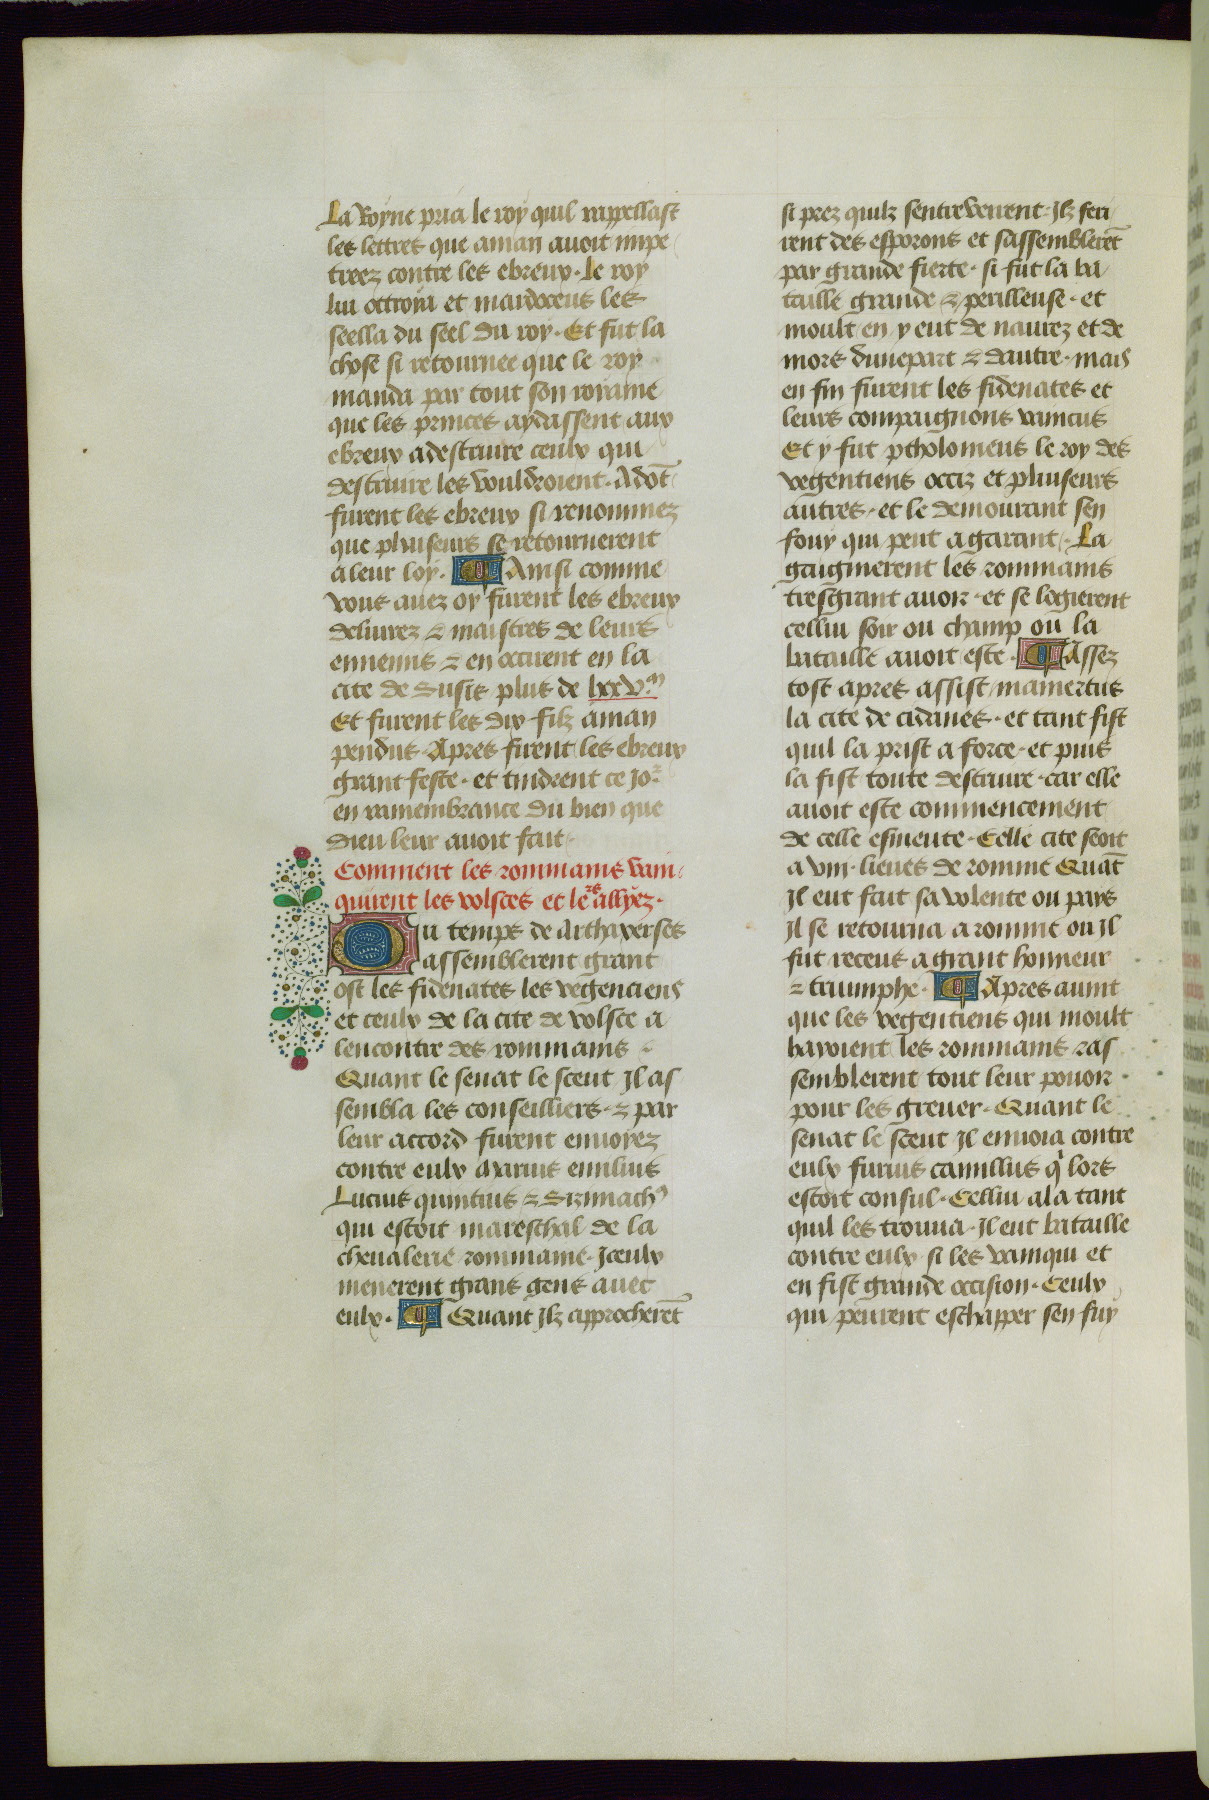 La Royne pria le roy quil rappellast
les lettres que aman auoit impe
trees contre les ebreux. Le roy
lui octroia et mardoceus les
seella du seel du roy. Et fut la
chose si retournee que le roy
manda par tout son roiame
que les princes aydassent aux
ebreux a destruire ceulx qui
destruire les vouldroient. Adōt
furent les ebreux si renommez
que pluiseurs se retournerent
a leur loy. ¶ Ainsi comme
vous auez oy furent les ebreux
deliurez & maistres de leurs
ennemis & en occirent en la
cite de Susis plus de lxxv.m
Et furent les dix filz aman
pendus. Apres firent les ebreux
grant feste. et tindrent ce joʳ
en ramembrance du bien que
dieu leur auoit fait.
Comment les rommains vain
quirent les volsces et leʳˢ allyez.
Du temps de Arthaxerses
assemblerent grant
ost les fidenates les vegenciens
et ceulx de la cite de volsce a
lencontre des rommains
Quant le senat le sceut Il as
sembla les conseilliers. & par
leur accord furent enuoyez
contre eulx Marius emilius
Lucius quintius & Sizimachꝰ
qui estoit mareschal de la
cheualerie rommaine. Iceulx
menerent grans gens auec
eulx. ¶ Quant Ilz approcherēt
si prez quilz sentreveirent. Ilz feri
rent des esporons et sassemblerēt
par grande fierte. si fut la ba
taille grande & perilleuse. et
moult en y eut de naurez et de
mors dunepart & dautre. mais
en fin furent les fidenates et
leurs compaignons vaincus
Et y fut ptholomeus le roy des
vegentiens occiz et pluiseurs
autres. et le demourant sen
fouy qui peut a garant. La
gaignierent les rommains
tresgrant auoir. et se logierent
cellui soir ou champ ou la
bataille auoit este. ¶ Assez
tost apres assist mamertus
la cite de cidanes. et tant fist
quil la prist a force. et puis
la fist toute destruire. car elle
auoit este commencement
de celle esmeute. Celle cite seoit
a viii. lieues de romme Quāt
Il eut fait sa volente ou pays
Il se retourna a romme ou Il
fut receus a grant honneur
& triumphe. ¶ Apres auint
que les vegentiens qui moult
hayoient les rommains ras
semblerent tout leur pouoir
pour les greuer. Quant le
senat le sceut Il enuoia contre
eulx furius camillus q̉ lors
estoit consul. Cellui ala tant
quil les trouua. Il eut bataille
contre eulx. si les vainqui et
en fist grande occision. Ceulx
qui peurent eschapper sen fuy